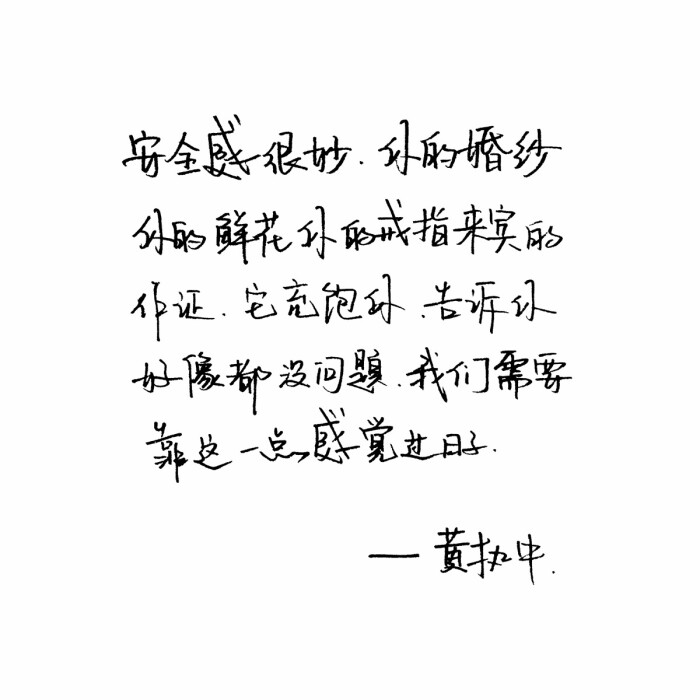 安全感很妙.你的婚纱
你的鲜花你的戒指来宾的
作证.它充饱你.告诉你
好像都没问题.我们需要
靠这一点感觉过日子.
——黄执中.